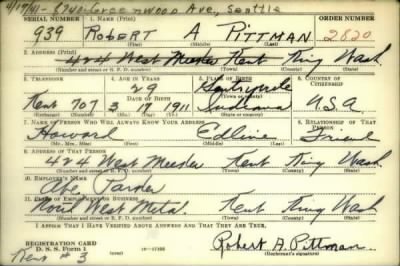 4/17/41- 8740 Greenwood Ave, Seattle
SERIAL NUMBER 1. NAME (Print) ORDER NUMBER
939 ROBERT A PITTMAN 2820
(First) (Middle) (Last)
2. ADDRESS (Print)
424 West Meeker Kent King Wash.
(Number and street or R. F. D. number) (Town) (County) (State)
3. TELEPHONE 4. AGE IN YEARS 5. PLACE OF BIRTH 6. COUNTRY OF CITIZENSHIP
29
DATE OF BIRTH
Kent 707 3 17 1911 Indiana U.S.A
(Exchange) (No.) (Mo.) (Day) (Yr.) (State or country)
7. NAME OF PERSON WHO WILL ALWAYS KNOW YOUR ADDRESS 8. RELATIONSHIP OF THAT PERSON
Howard Edline Friend
(Mr., Mrs., Miss) (First) (Middle) (Last)
9. ADDRESS OF THAT PERSON
424 West Meeker Kent King Wash.
(Number and street or R. F. D. number) (Town) (County) (State)
10. EMPLOYER'S NAME
Abe Parker
11. PLACE OF EMPLOYMENT OR BUSINESS
West Kent King Wash.
(Number and street or R. F. D. number) (Town) (County) (State)
I AFFIRM THAT I HAVE VERIFIED ABOVE ANSWERS AND THAT THEY ARE TRUE.
REGISTRATION CARD
D. S. S. Form 1
Robert A. Pittman
(Registrant's signature)
Kent #3